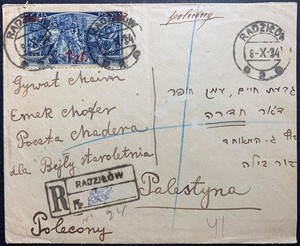 polecony
RADZIŁÓW
8-X-34
1 zł
Gywat Chaim
Emek Chofer
Poczta Chadera
dla Bejly staroletnia
גבעת חיים, עמק חופר
דואר חדרה
RADZIŁÓW
R
№
Palestyna
Polecony